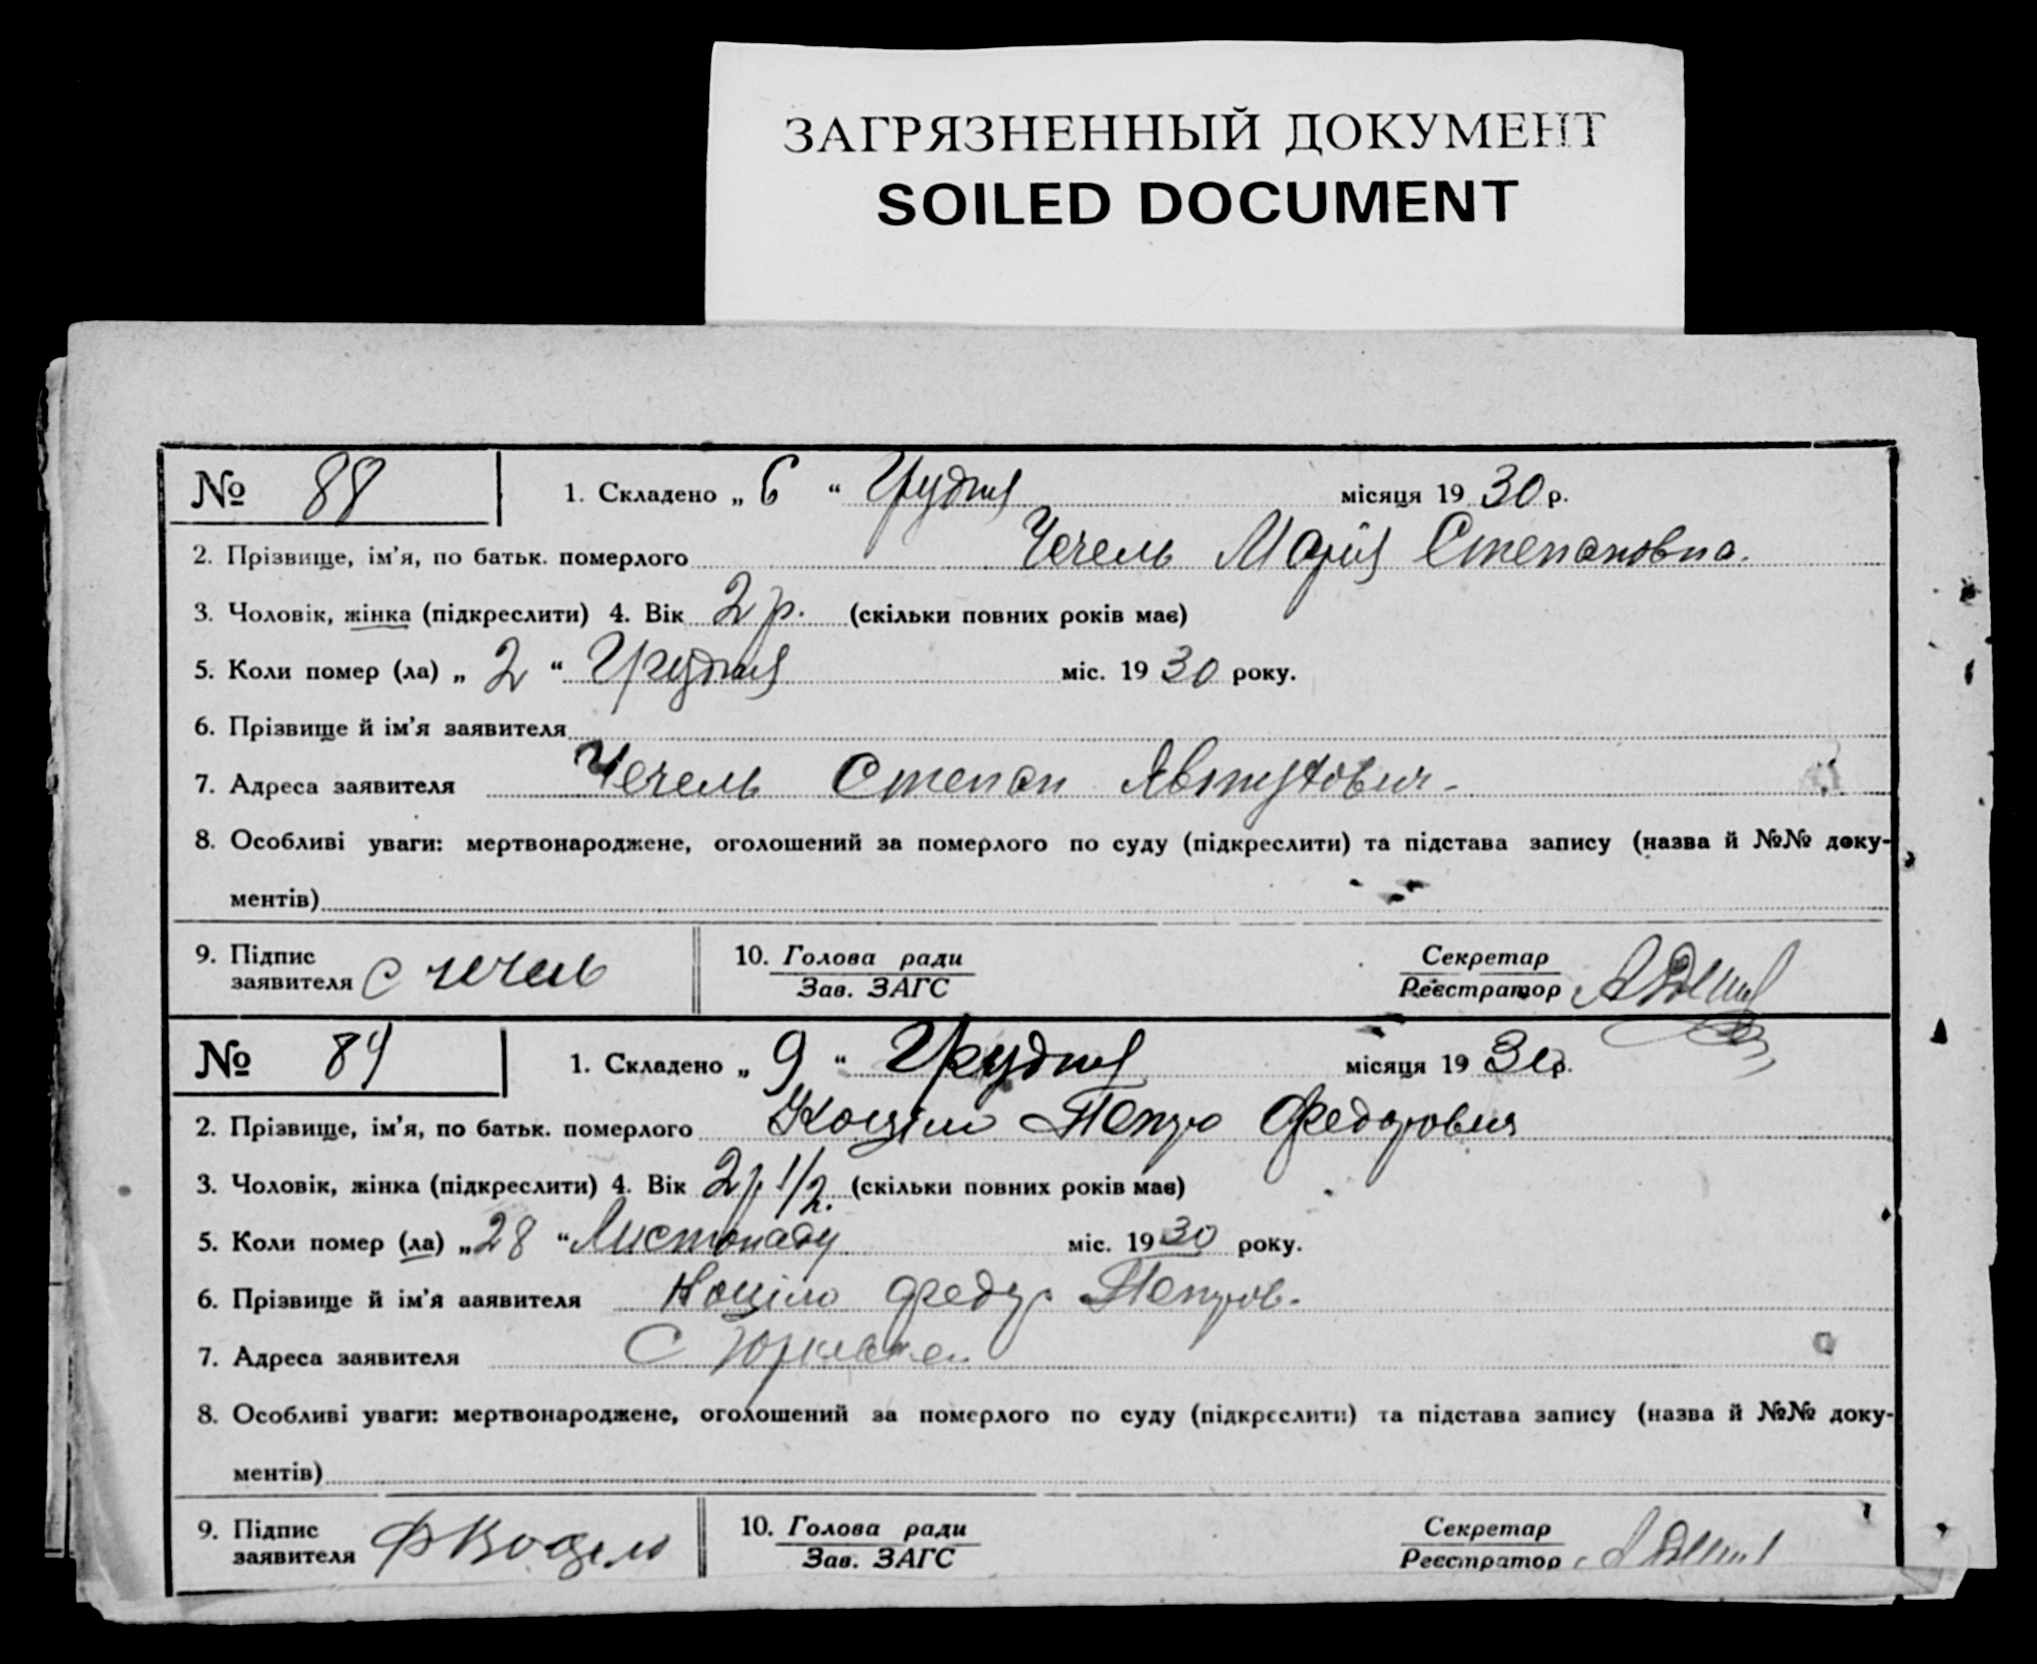 ЗАГРЯЗНЕННЫЙ ДОКУМЕНТ
SOILED DOCUMENT
№ 88 1. Складено „ 6 “ Грудня місяця 19 30 р.
2. Прізвище, ім’я, по батьк. померлого Чечель Марія Степановна.
3. Чоловік, жінка (підкреслити) 4. Вік 2 р. (скільки повних років має)
5. Коли помер (ла) „ 2 “ Грудня міс. 19 30 року.
6. Прізвище й ім’я заявителя
7. Адреса заявителя Чечель Степан Явтухович
8. Особливі уваги: мертвонароджене, оголошений за померлого по суду (підкреслити) та підстава запису (назва й №№ доку-
ментів)
9. Підпис 10. Голова ради Секретар
заявителя С Чечель Зав. ЗАГС Реєстратор
№ 89 1. Складено „ 9 “ Грудня місяця 19 30 р.
2. Прізвище, ім’я, по батьк. померлого Коціло Петро Федорович
3. Чоловік, жінка (підкреслити) 4. Вік 2 р 1/2. (скільки повних років має)
5. Коли помер (ла) „ 28 “ Листопаду міс. 19 30 року.
6. Прізвище й ім’я заявителя Коціло Федір Петров.
7. Адреса заявителя С
8. Особливі уваги: мертвонароджене, оголошений за померлого по суду (підкреслити) та підстава запису (назва й №№ доку-
ментів)
9. Підпис 10. Голова ради Секретар
заявителя Ф Коціло Зав. ЗАГС Реєстратор